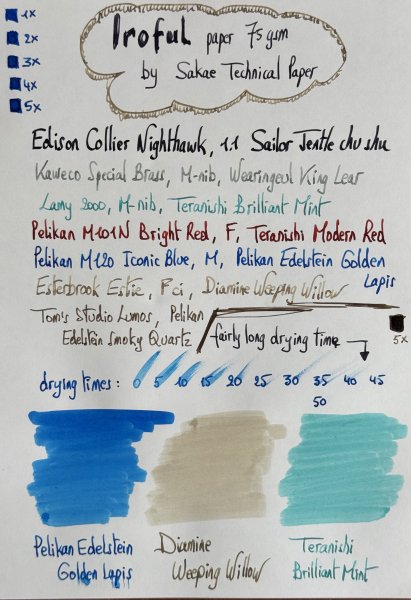 1x
2x
3x
4x
5x
Iroful paper 75 gsm
by Sakae Technical Paper
Edison Collier Nighthawk, 1.1 Sailor Jentle chu shu
Kaweco Special Brass, M-nib, Wearingeul King Lear
Lamy 2000, M-nib, Teranishi Brilliant Mint
Pelikan M101N Bright Red, F, Teranishi Modern Red
Pelikan M120 Iconic Blue, M, Pelikan Edelstein Golden
Lapis
Esterbrook Estie, Fci, Diamine Weeping Willow
Tom's Studio Lumos, Pelikan
Edelstein Smoky Quartz
fairly long drying time
5x
drying times: 0 5 10 15 20 25 30 35 40 45
50
Pelikan Edelstein
Golden Lapis
Diamine
Weeping Willow
Teranishi
Brilliant Mint